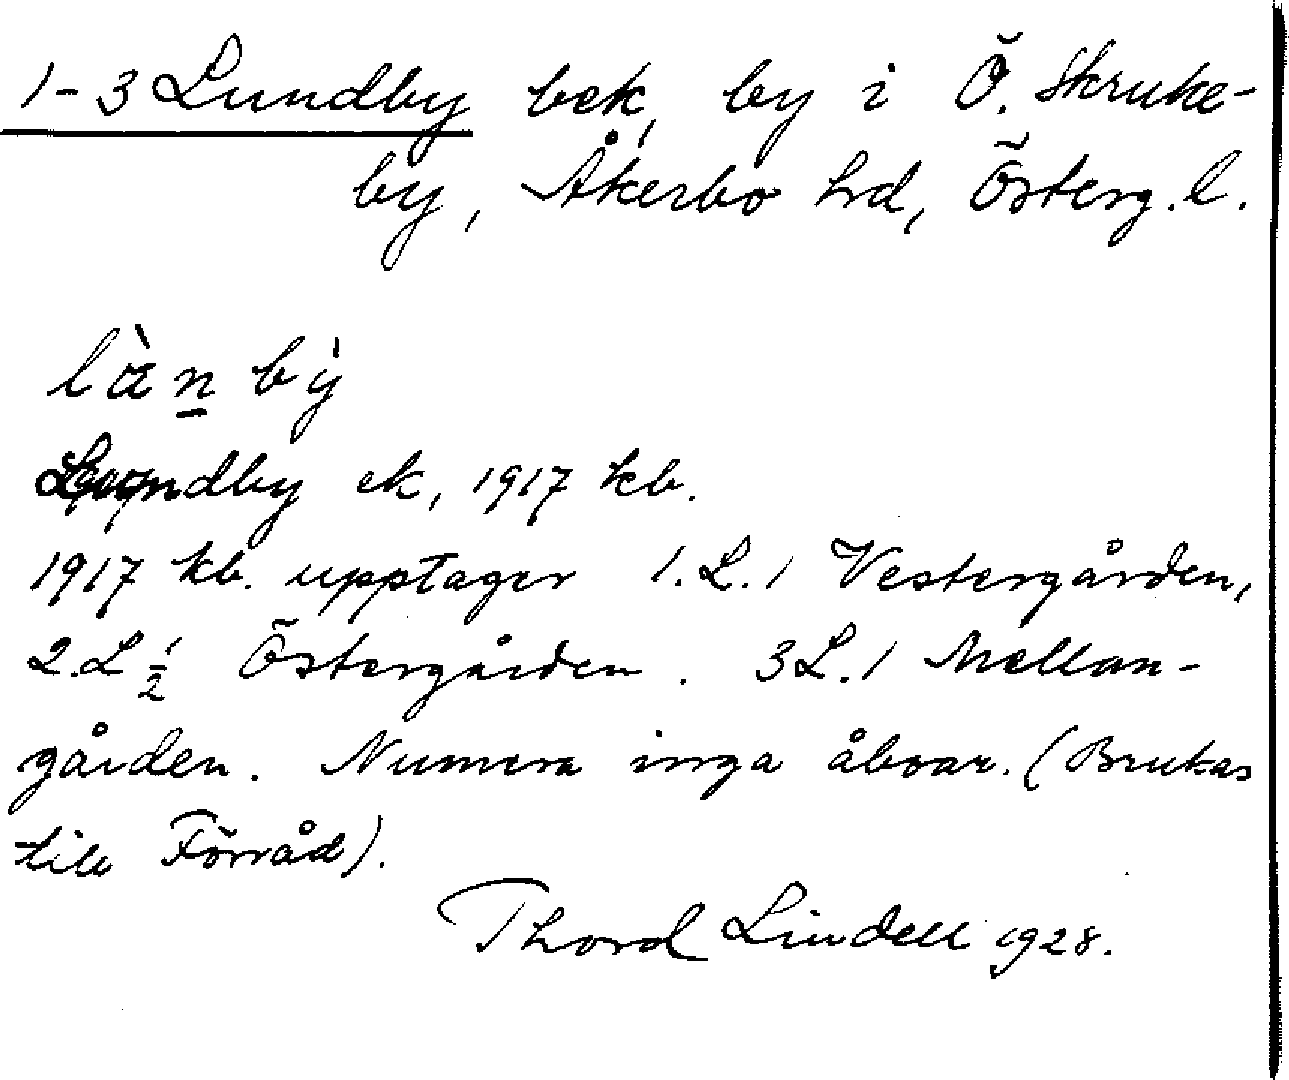 1-3 Lundby bek, by i Ö. Skruke-
by, Åkerbo hd, Österg. l.
læ̀n bỳ
Lundby ek, 1917 kb.
1917 kb. upptager 1. L. 1 Vestergården,
2. L ½ Östergården. 3 L. 1 Mellan-
gården. Numera inga åboar. (Brukas
till Förråd).
Thord Lindell 1928.